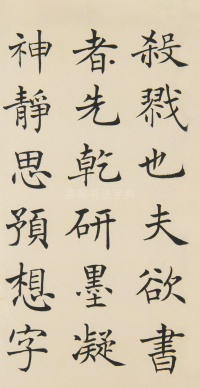 殺戮也夫欲書
者先乾研墨凝
神靜思預想字